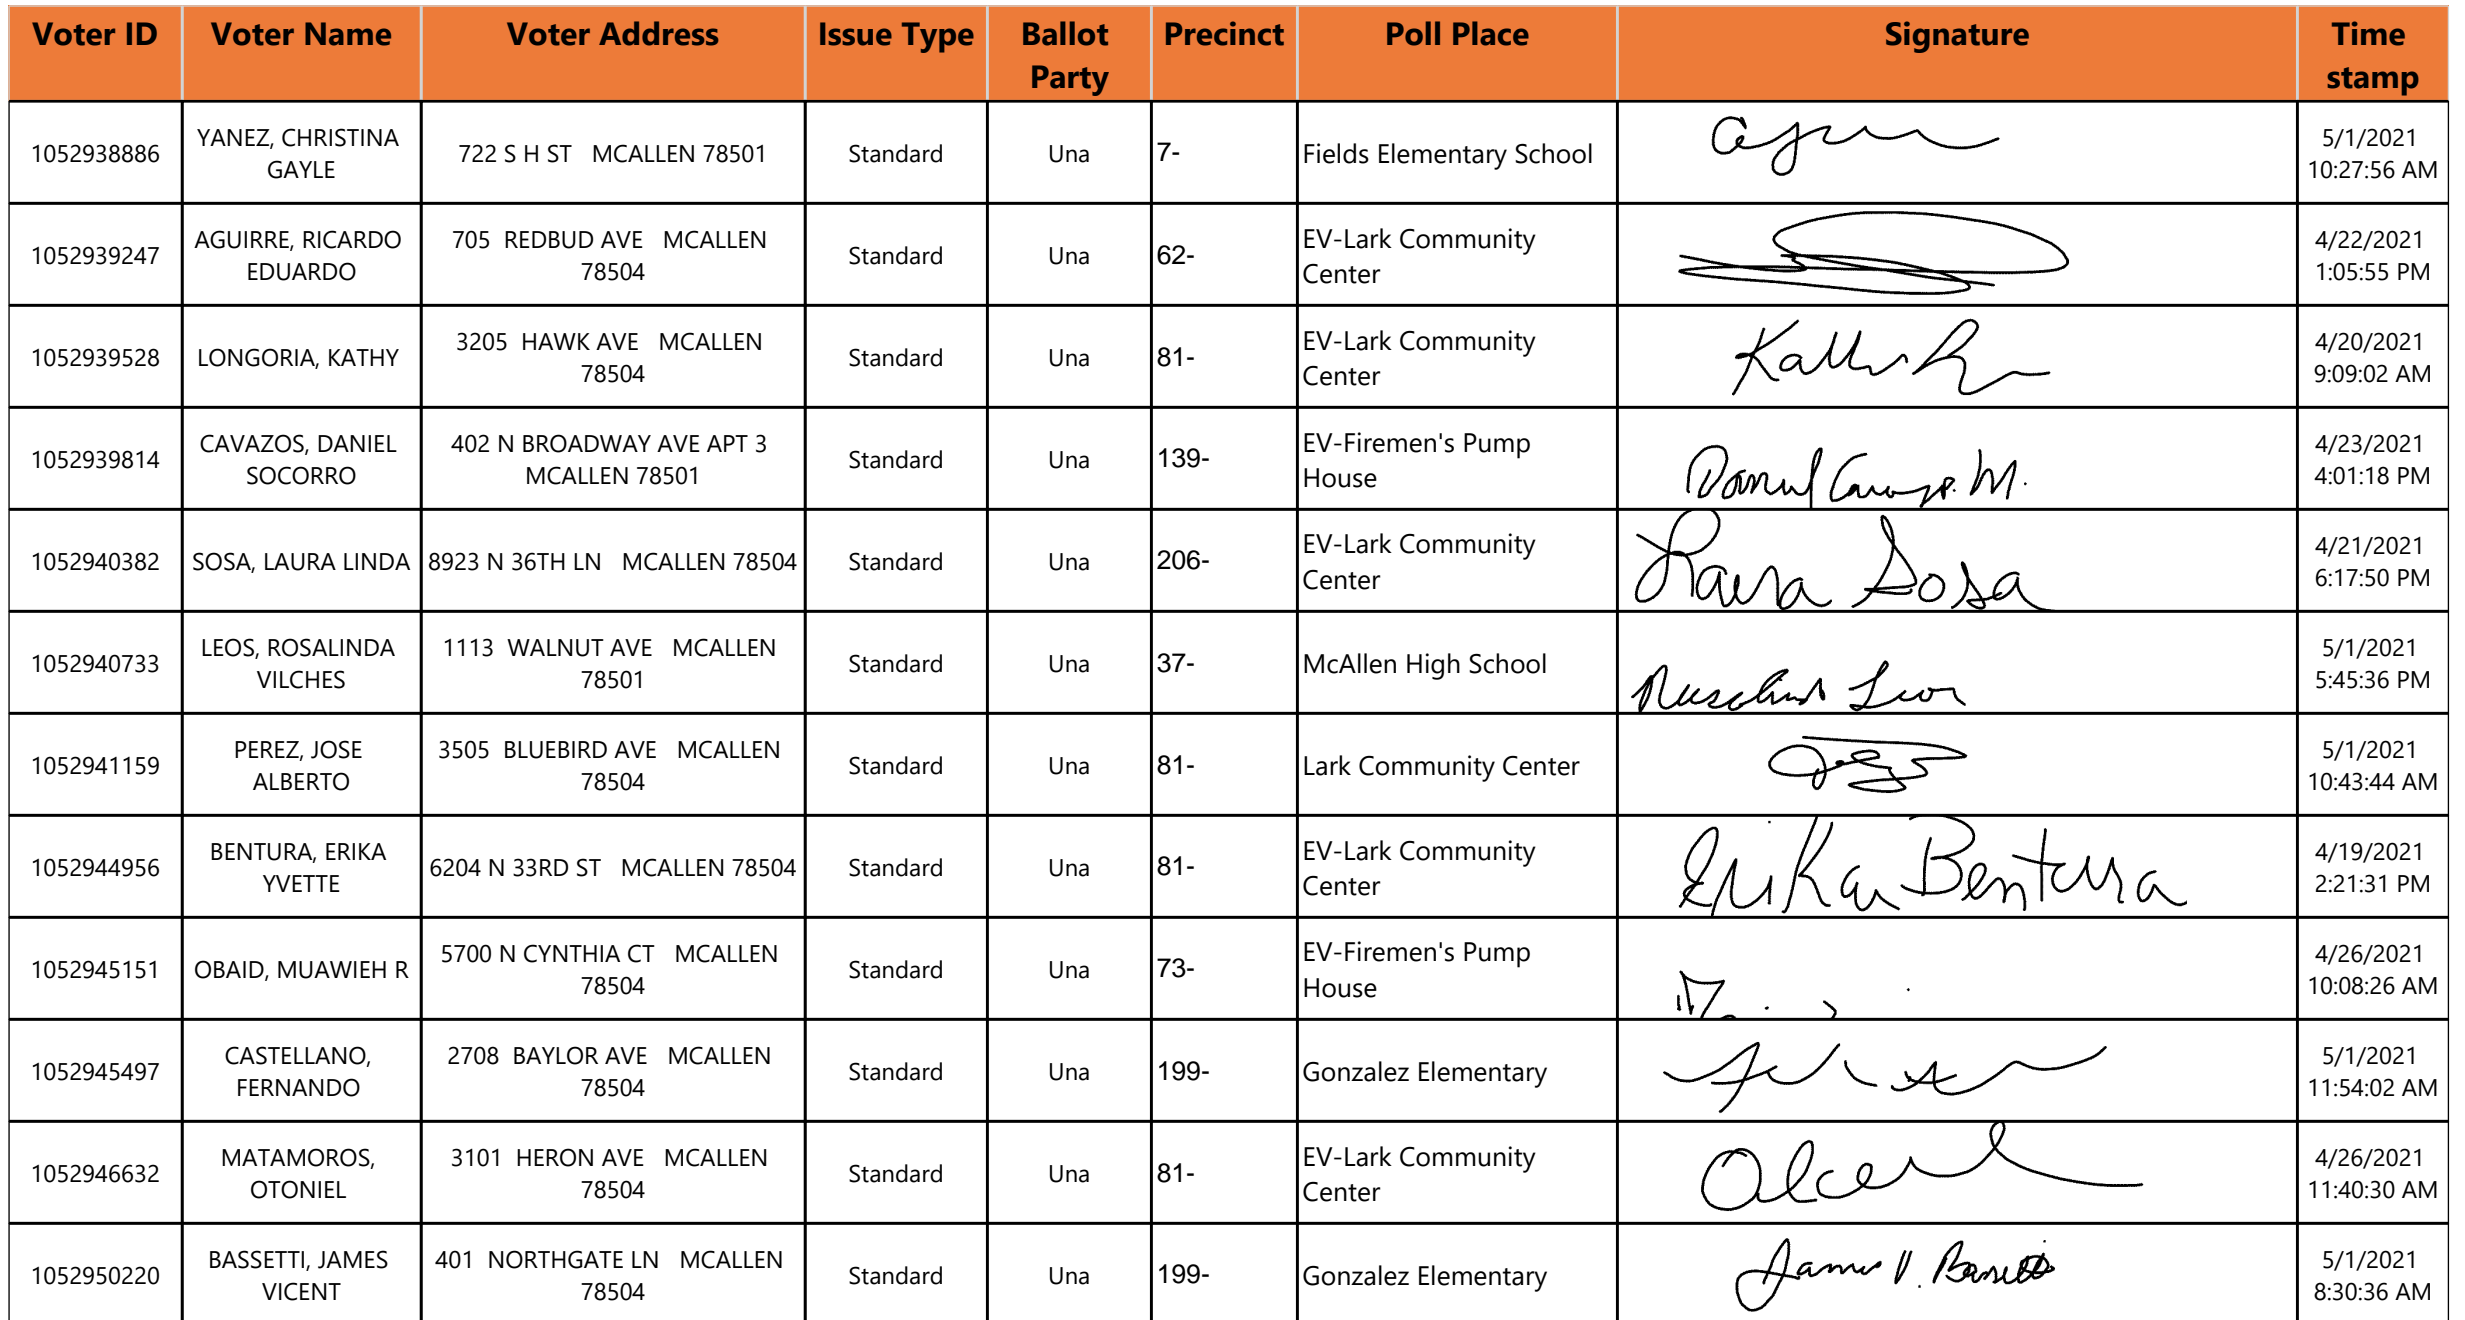 Voter ID Voter Name Voter Address Issue Type Ballot Party Precinct Poll Place Signature Time stamp
1052938886 YANEZ, CHRISTINA GAYLE 722 S H ST MCALLEN 78501 Standard Una 7- Fields Elementary School 5/1/2021 10:27:56 AM
1052939247 AGUIRRE, RICARDO EDUARDO 705 REDBUD AVE MCALLEN 78504 Standard Una 62- EV-Lark Community Center 4/22/2021 1:05:55 PM
1052939528 LONGORIA, KATHY 3205 HAWK AVE MCALLEN 78504 Standard Una 81- EV-Lark Community Center 4/20/2021 9:09:02 AM
1052939814 CAVAZOS, DANIEL SOCORRO 402 N BROADWAY AVE APT 3 MCALLEN 78501 Standard Una 139- EV-Firemen's Pump House 4/23/2021 4:01:18 PM
1052940382 SOSA, LAURA LINDA 8923 N 36TH LN MCALLEN 78504 Standard Una 206- EV-Lark Community Center Laura Sosa 4/21/2021 6:17:50 PM
1052940733 LEOS, ROSALINDA VILCHES 1113 WALNUT AVE MCALLEN 78501 Standard Una 37- McAllen High School 5/1/2021 5:45:36 PM
1052941159 PEREZ, JOSE ALBERTO 3505 BLUEBIRD AVE MCALLEN 78504 Standard Una 81- Lark Community Center 5/1/2021 10:43:44 AM
1052944956 BENTURA, ERIKA YVETTE 6204 N 33RD ST MCALLEN 78504 Standard Una 81- EV-Lark Community Center Erika Bentura 4/19/2021 2:21:31 PM
1052945151 OBAID, MUAWIEH R 5700 N CYNTHIA CT MCALLEN 78504 Standard Una 73- EV-Firemen's Pump House 4/26/2021 10:08:26 AM
1052945497 CASTELLANO, FERNANDO 2708 BAYLOR AVE MCALLEN 78504 Standard Una 199- Gonzalez Elementary 5/1/2021 11:54:02 AM
1052946632 MATAMOROS, OTONIEL 3101 HERON AVE MCALLEN 78504 Standard Una 81- EV-Lark Community Center 4/26/2021 11:40:30 AM
1052950220 BASSETTI, JAMES VICENT 401 NORTHGATE LN MCALLEN 78504 Standard Una 199- Gonzalez Elementary James V. Bassetti 5/1/2021 8:30:36 AM